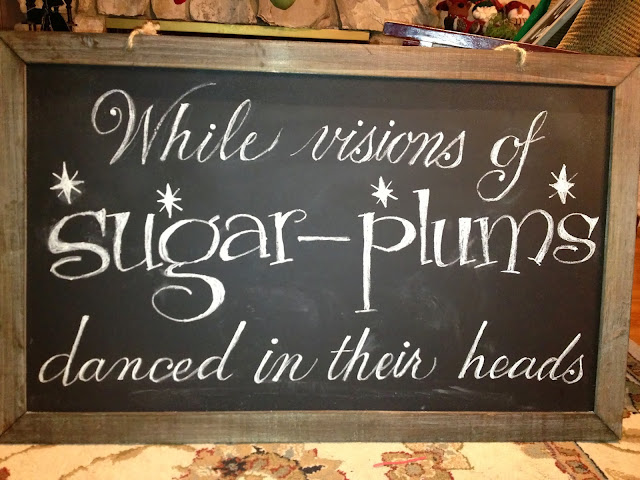 While visions of
sugar-plums
danced in their heads